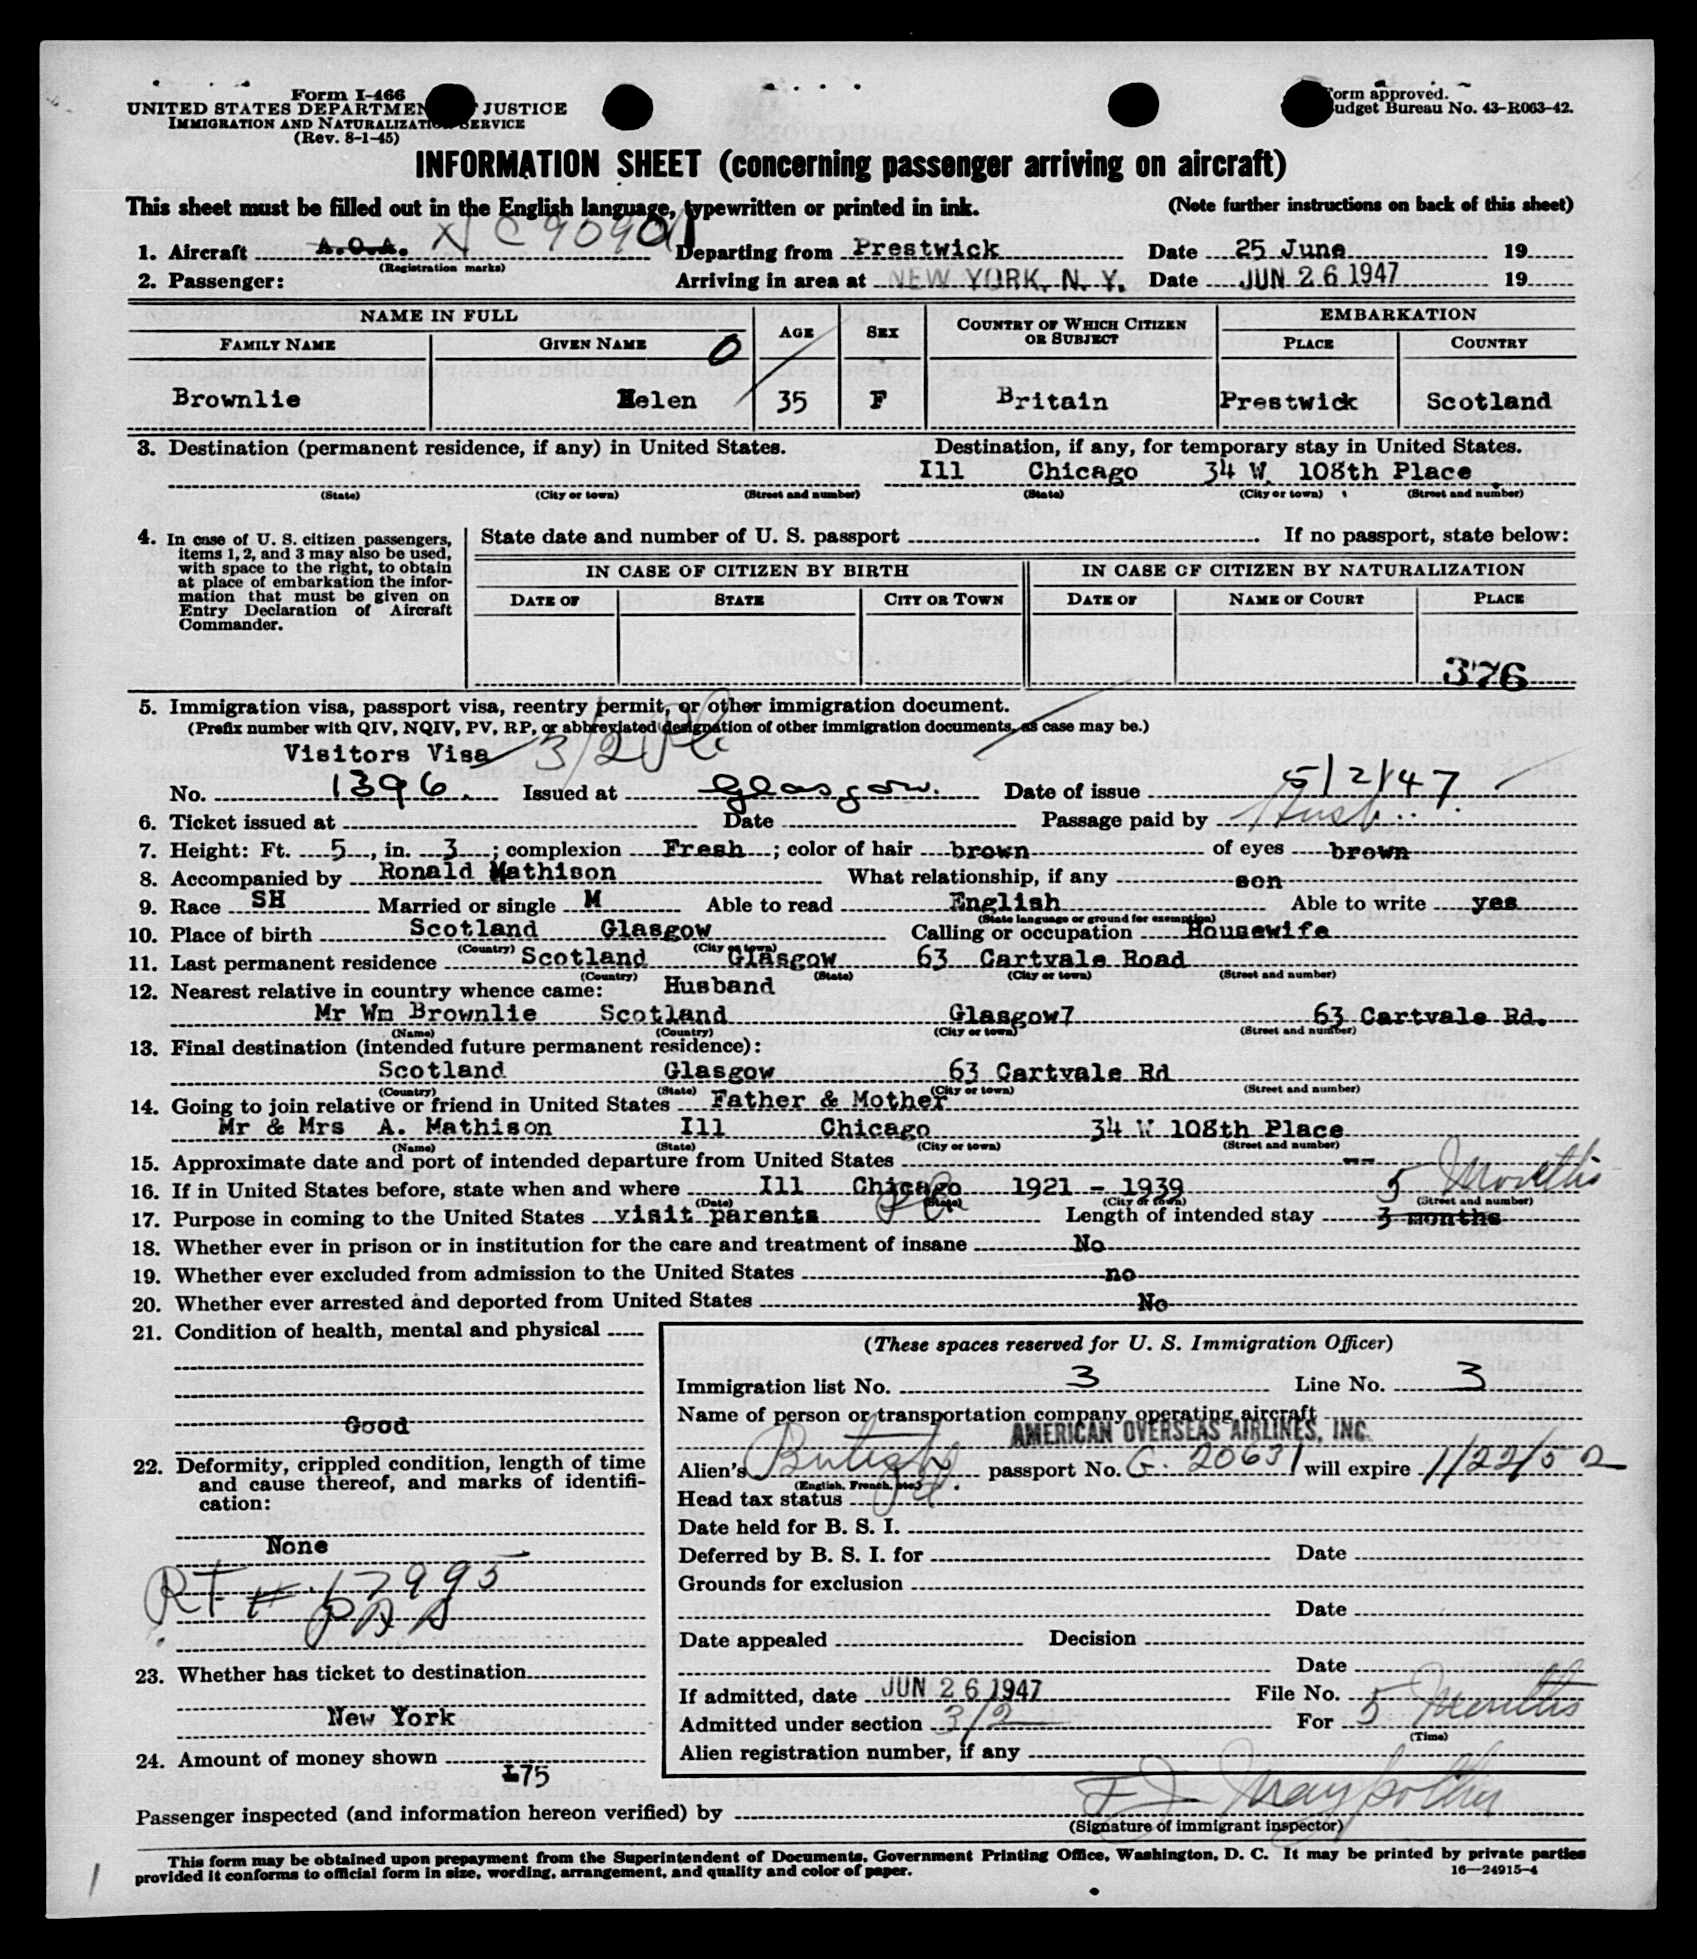 Form I-466
UNITED STATES DEPARTMEN JUSTICE
IMMIGRATION AND NATURALIZATION SERVICE
(Rev. 8-1-45)
Form approved.
Budget Bureau No. 43-R063-42.
INFORMATION SHEET (concerning passenger arriving on aircraft)
This sheet must be filled out in the English language, typewritten or printed in ink. (Note further instructions on back of this sheet)
1. Aircraft A.O.A. Departing from Prestwick Date 25 June 19
(Registration marks)
2. Passenger: Arriving in area at NEW YORK, N. Y. Date JUN 26 1947 19
NAME IN FULL AGE SEX COUNTRY OF WHICH CITIZEN OR SUBJECT EMBARKATION
FAMILY NAME GIVEN NAME PLACE COUNTRY
O
Brownlie Helen 35 F Britain Prestwick Scotland
3. Destination (permanent residence, if any) in United States. Destination, if any, for temporary stay in United States.
Ill Chicago 34 W. 108th Place
(State) (City or town) (Street and number) (State) (City or town) (Street and number)
4. In case of U. S. citizen passengers, items 1, 2, and 3 may also be used, with space to the right, to obtain at place of embarkation the information that must be given on Entry Declaration of Aircraft Commander.
State date and number of U. S. passport If no passport, state below:
IN CASE OF CITIZEN BY BIRTH IN CASE OF CITIZEN BY NATURALIZATION
DATE OF STATE CITY OR TOWN DATE OF NAME OF COURT PLACE
376
5. Immigration visa, passport visa, reentry permit, or other immigration document.
(Prefix number with QIV, NQIV, PV, RP, or abbreviated designation of other immigration documents, as case may be.)
Visitors Visa 3/2
No. 1396. Issued at Glasgow. Date of issue 5/2/47.
6. Ticket issued at Date Passage paid by Husb.
7. Height: Ft. 5, in. 3; complexion Fresh; color of hair brown of eyes brown
8. Accompanied by Ronald Mathison What relationship, if any son
9. Race SH Married or single M Able to read English Able to write yes
(State language or ground for exemption)
10. Place of birth Scotland Glasgow Calling or occupation Housewife
(Country) (City or town)
11. Last permanent residence Scotland Glasgow 63 Cartvale Road
(Country) (State) (City or town) (Street and number)
12. Nearest relative in country whence came: Husband
Mr Wm Brownlie Scotland Glasgow7 63 Cartvale Rd.
(Name) (Country) (City or town) (Street and number)
13. Final destination (intended future permanent residence):
Scotland Glasgow 63 Cartvale Rd
(Country) (State) (City or town) (Street and number)
14. Going to join relative or friend in United States Father & Mother
Mr & Mrs A. Mathison Ill Chicago 34 W 108th Place
(Name) (State) (City or town) (Street and number)
15. Approximate date and port of intended departure from United States --
16. If in United States before, state when and where Ill Chicago 1921 - 1939 5 Months
(Date) (State) (City or town) (Street and number)
17. Purpose in coming to the United States visit parents Length of intended stay 3 months
18. Whether ever in prison or in institution for the care and treatment of insane No
19. Whether ever excluded from admission to the United States no
20. Whether ever arrested and deported from United States No
21. Condition of health, mental and physical
Good
22. Deformity, crippled condition, length of time and cause thereof, and marks of identification:
None
RT # 17995
23. Whether has ticket to destination
New York
24. Amount of money shown
£75
(These spaces reserved for U. S. Immigration Officer)
Immigration list No. 3 Line No. 3
Name of person or transportation company operating aircraft
AMERICAN OVERSEAS AIRLINES, INC.
Alien's British passport No. G. 20631 will expire 1/22/52
(English, French, etc.)
Head tax status
Date held for B. S. I.
Deferred by B. S. I. for Date
Grounds for exclusion
Date
Date appealed Decision
Date
If admitted, date JUN 26 1947 File No.
Admitted under section 3/2 For 5 Months
(Time)
Alien registration number, if any
Passenger inspected (and information hereon verified) by
(Signature of immigrant inspector)
This form may be obtained upon prepayment from the Superintendent of Documents, Government Printing Office, Washington, D. C. It may be printed by private parties
provided it conforms to official form in size, wording, arrangement, and quality and color of paper. 16—24915-4